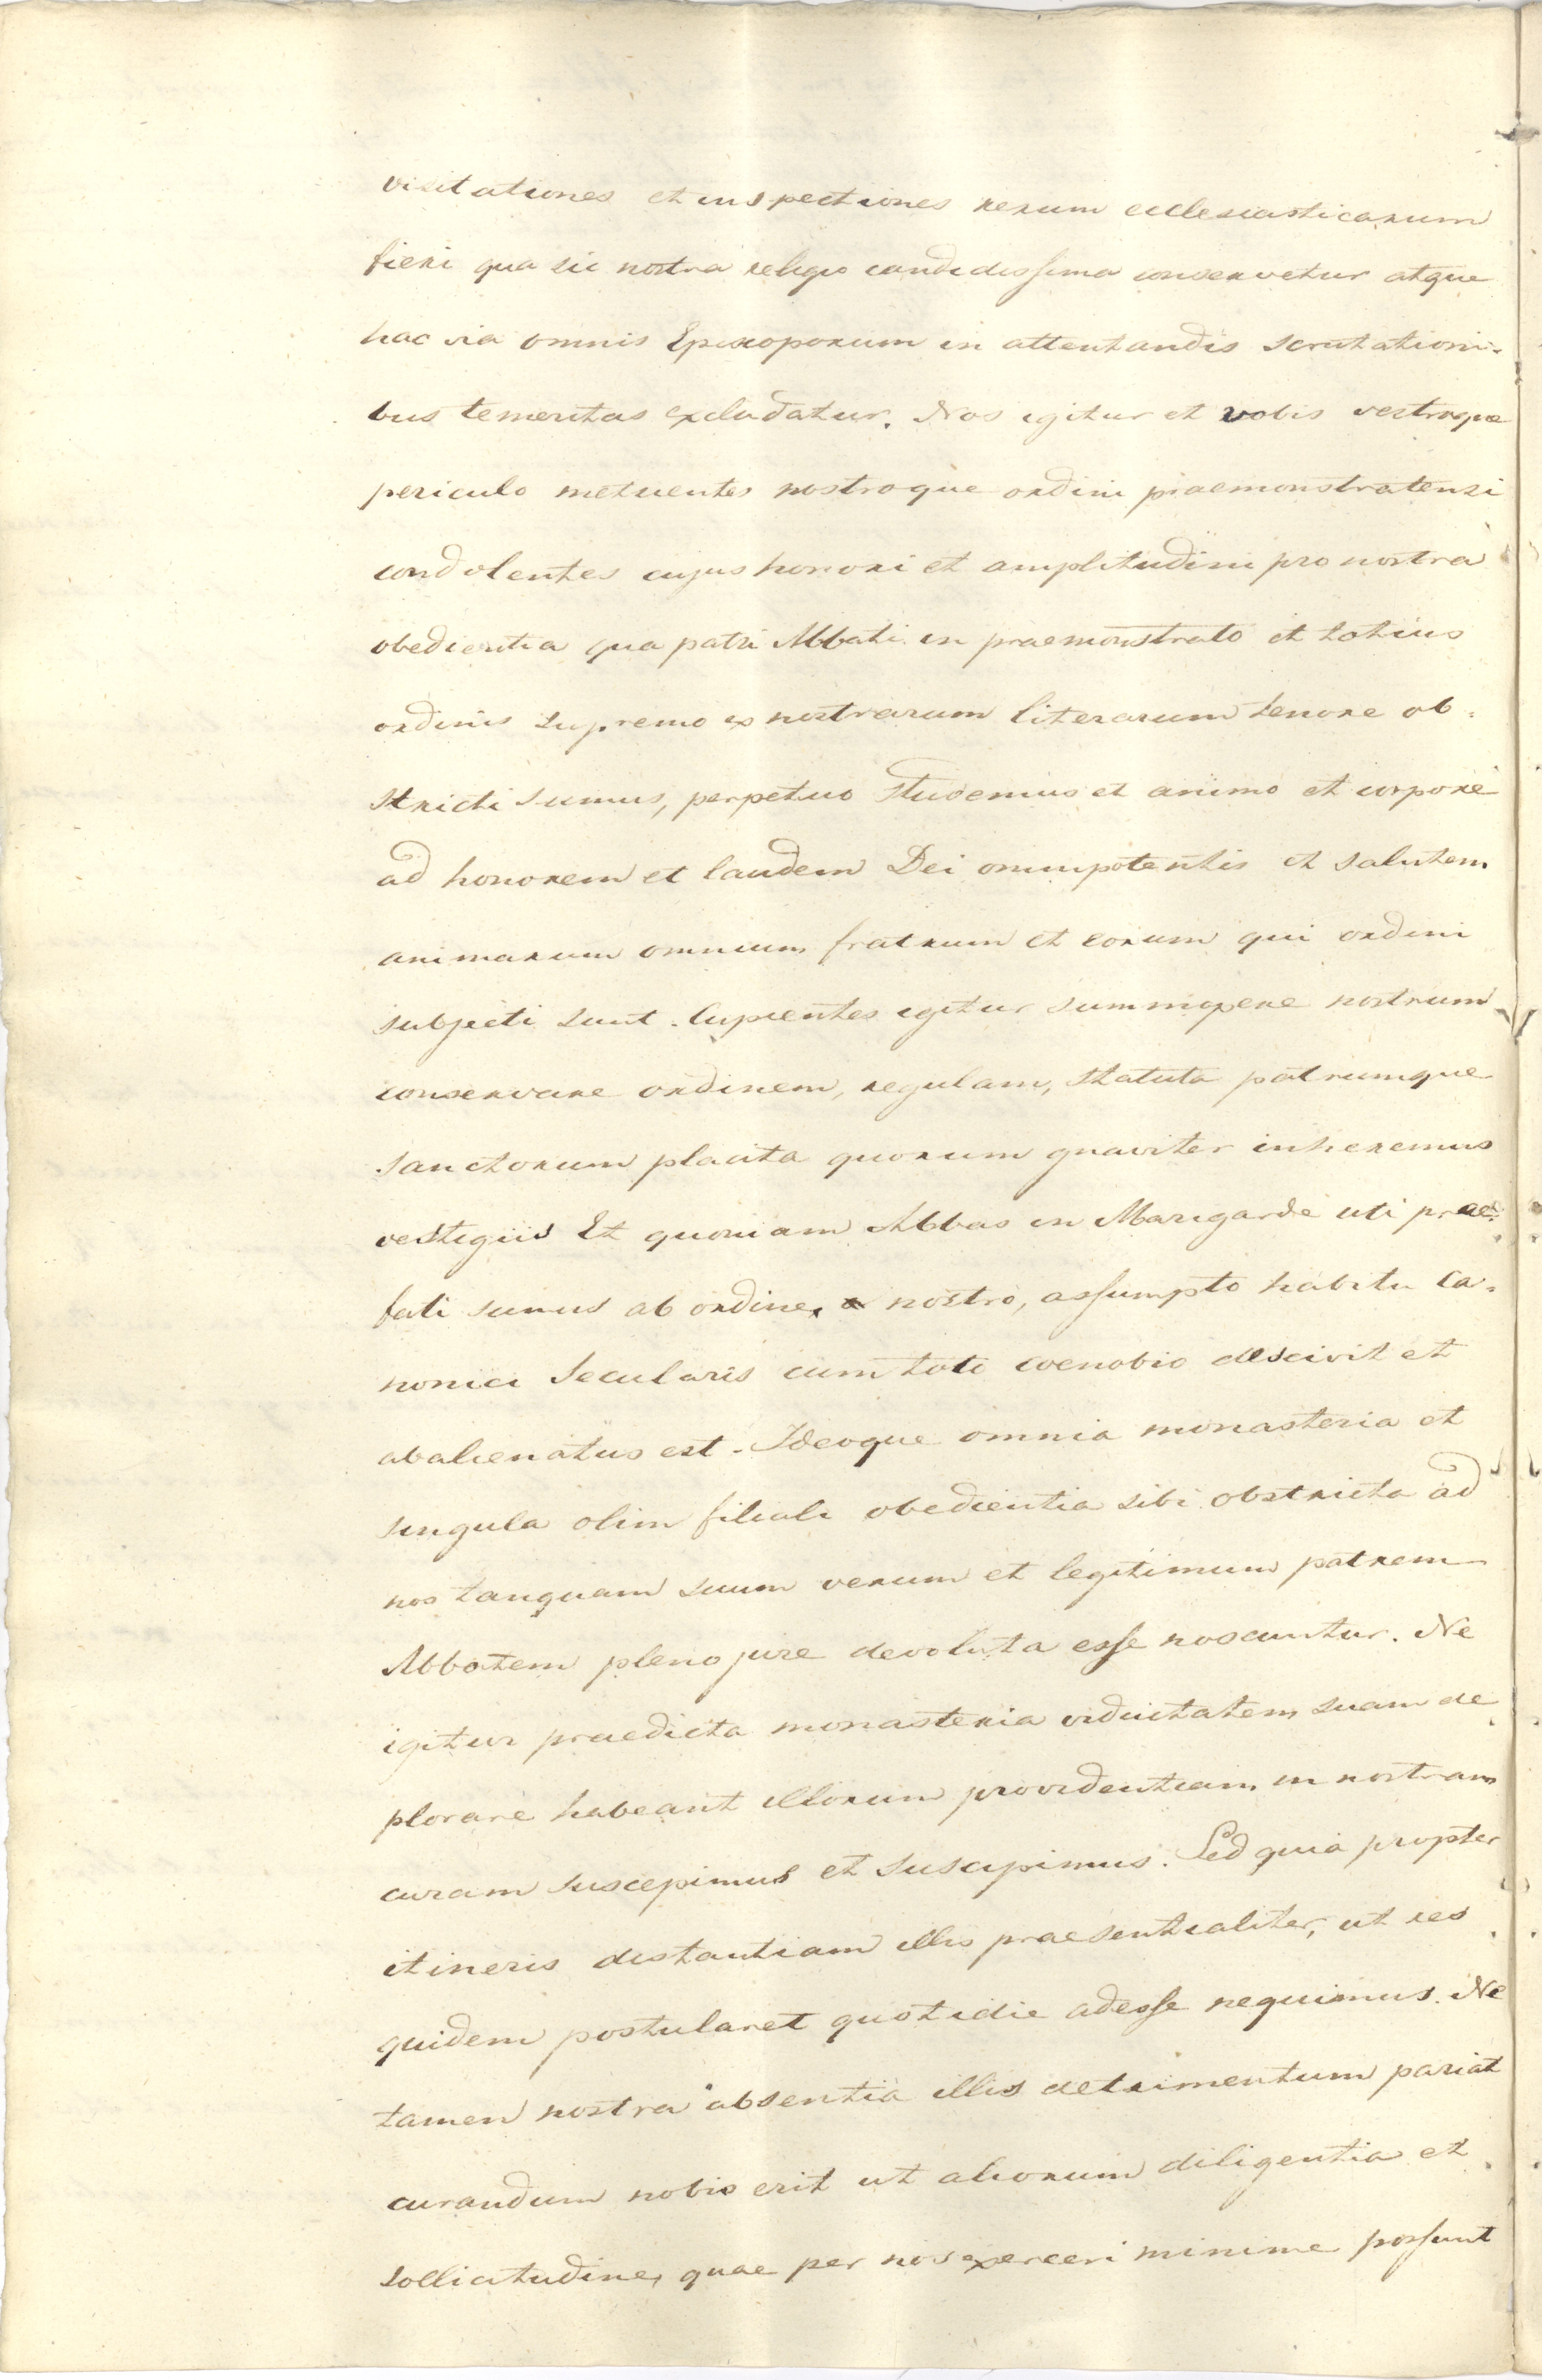 visitationes et inspectiones rerum ecclesiasticarum
fieri qua sic nostra religio candidissima conservetur atque
hac via omnis Episcoporum in attentandis scrutationi-
bus temeritas excludatur. Nos igitur et vobis vestroque
periculo metuentes nostroque ordini praemonstratensi
condolentes cujus honori et amplitudini pro nostra
obedientia qua patri Abbati in praemonstrato et totius
ordinis supremo ex nostrarum literarum tenore ob-
stricti sumus, perpetuo studemus et animo et corpore
ad honorem et laudem Dei omnipotentis et salutem
animarum omnium fratrum et eorum qui ordini
subjecti sunt. Cupientes igitur summopere nostrum
conservare ordinem, regulam, statuta patrumque
sanctorum placita quorum gnaviter inheremus
vestigiis Et quoniam Abbas in Marigarde uti prae-
fati sumus ab ordine nostro, assumpto habitu Ca-
nonici Secularis cum toto coenobio descivit et
abalienatus est. Ideoque omnia monasteria et
singula olim filiali obedientia sibi obstricta ad
nos tanquam suum verum et legitimum patrem
Abbatem pleno jure devoluta esse noscuntur. Ne
igitur praedicta monasteria viduitatem suam de-
plorare habeant illorum providentiam in nostram
curam suscepimus et suscipimus. Sed quia propter
itineris distantiam illis praesentialiter, ut res
quidem postularet quotidie adesse nequimus. Ne
tamen nostra absentia illis detrimentum pariat
curandum nobis erit ut aliorum diligentia et
sollicitudine, quae per nos exerceri minime possunt